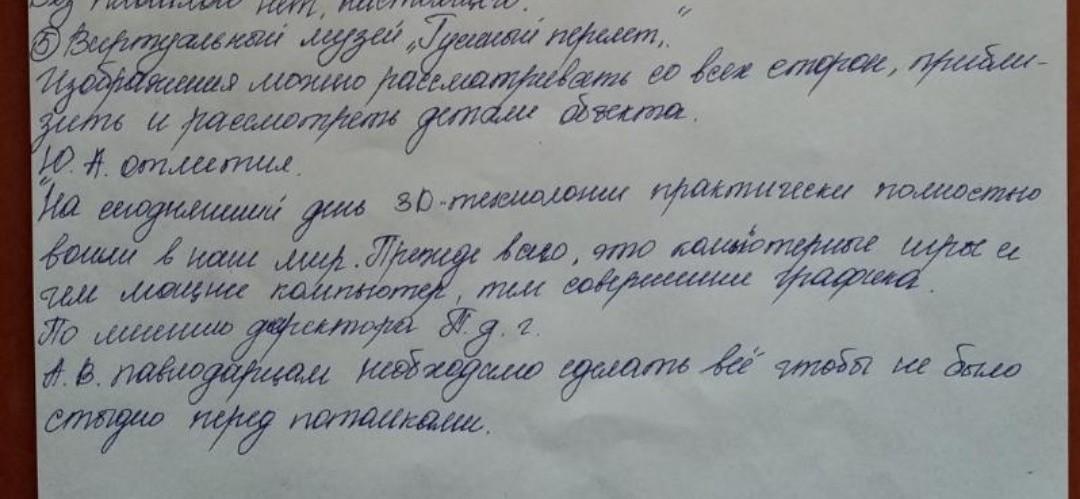 Без прошлого нет, настоящего.
⑤ Виртуальный музей „Гусиный перелет„.
Изображения можно рассматривать со всех сторон, прибли-
зить и рассмотреть детали объекта.
Ю. А. отметил.
"На сегодняшний день 3D-технологии практически полностью
вошли в наш мир. Прежде всего, это компьютерные игры и
чем мощнее компьютер, тем совершеннее графика.
По мнению директора П. д. г.
А. В. павлодарцам необходимо сделать всё чтобы не было
стыдно перед потомками.